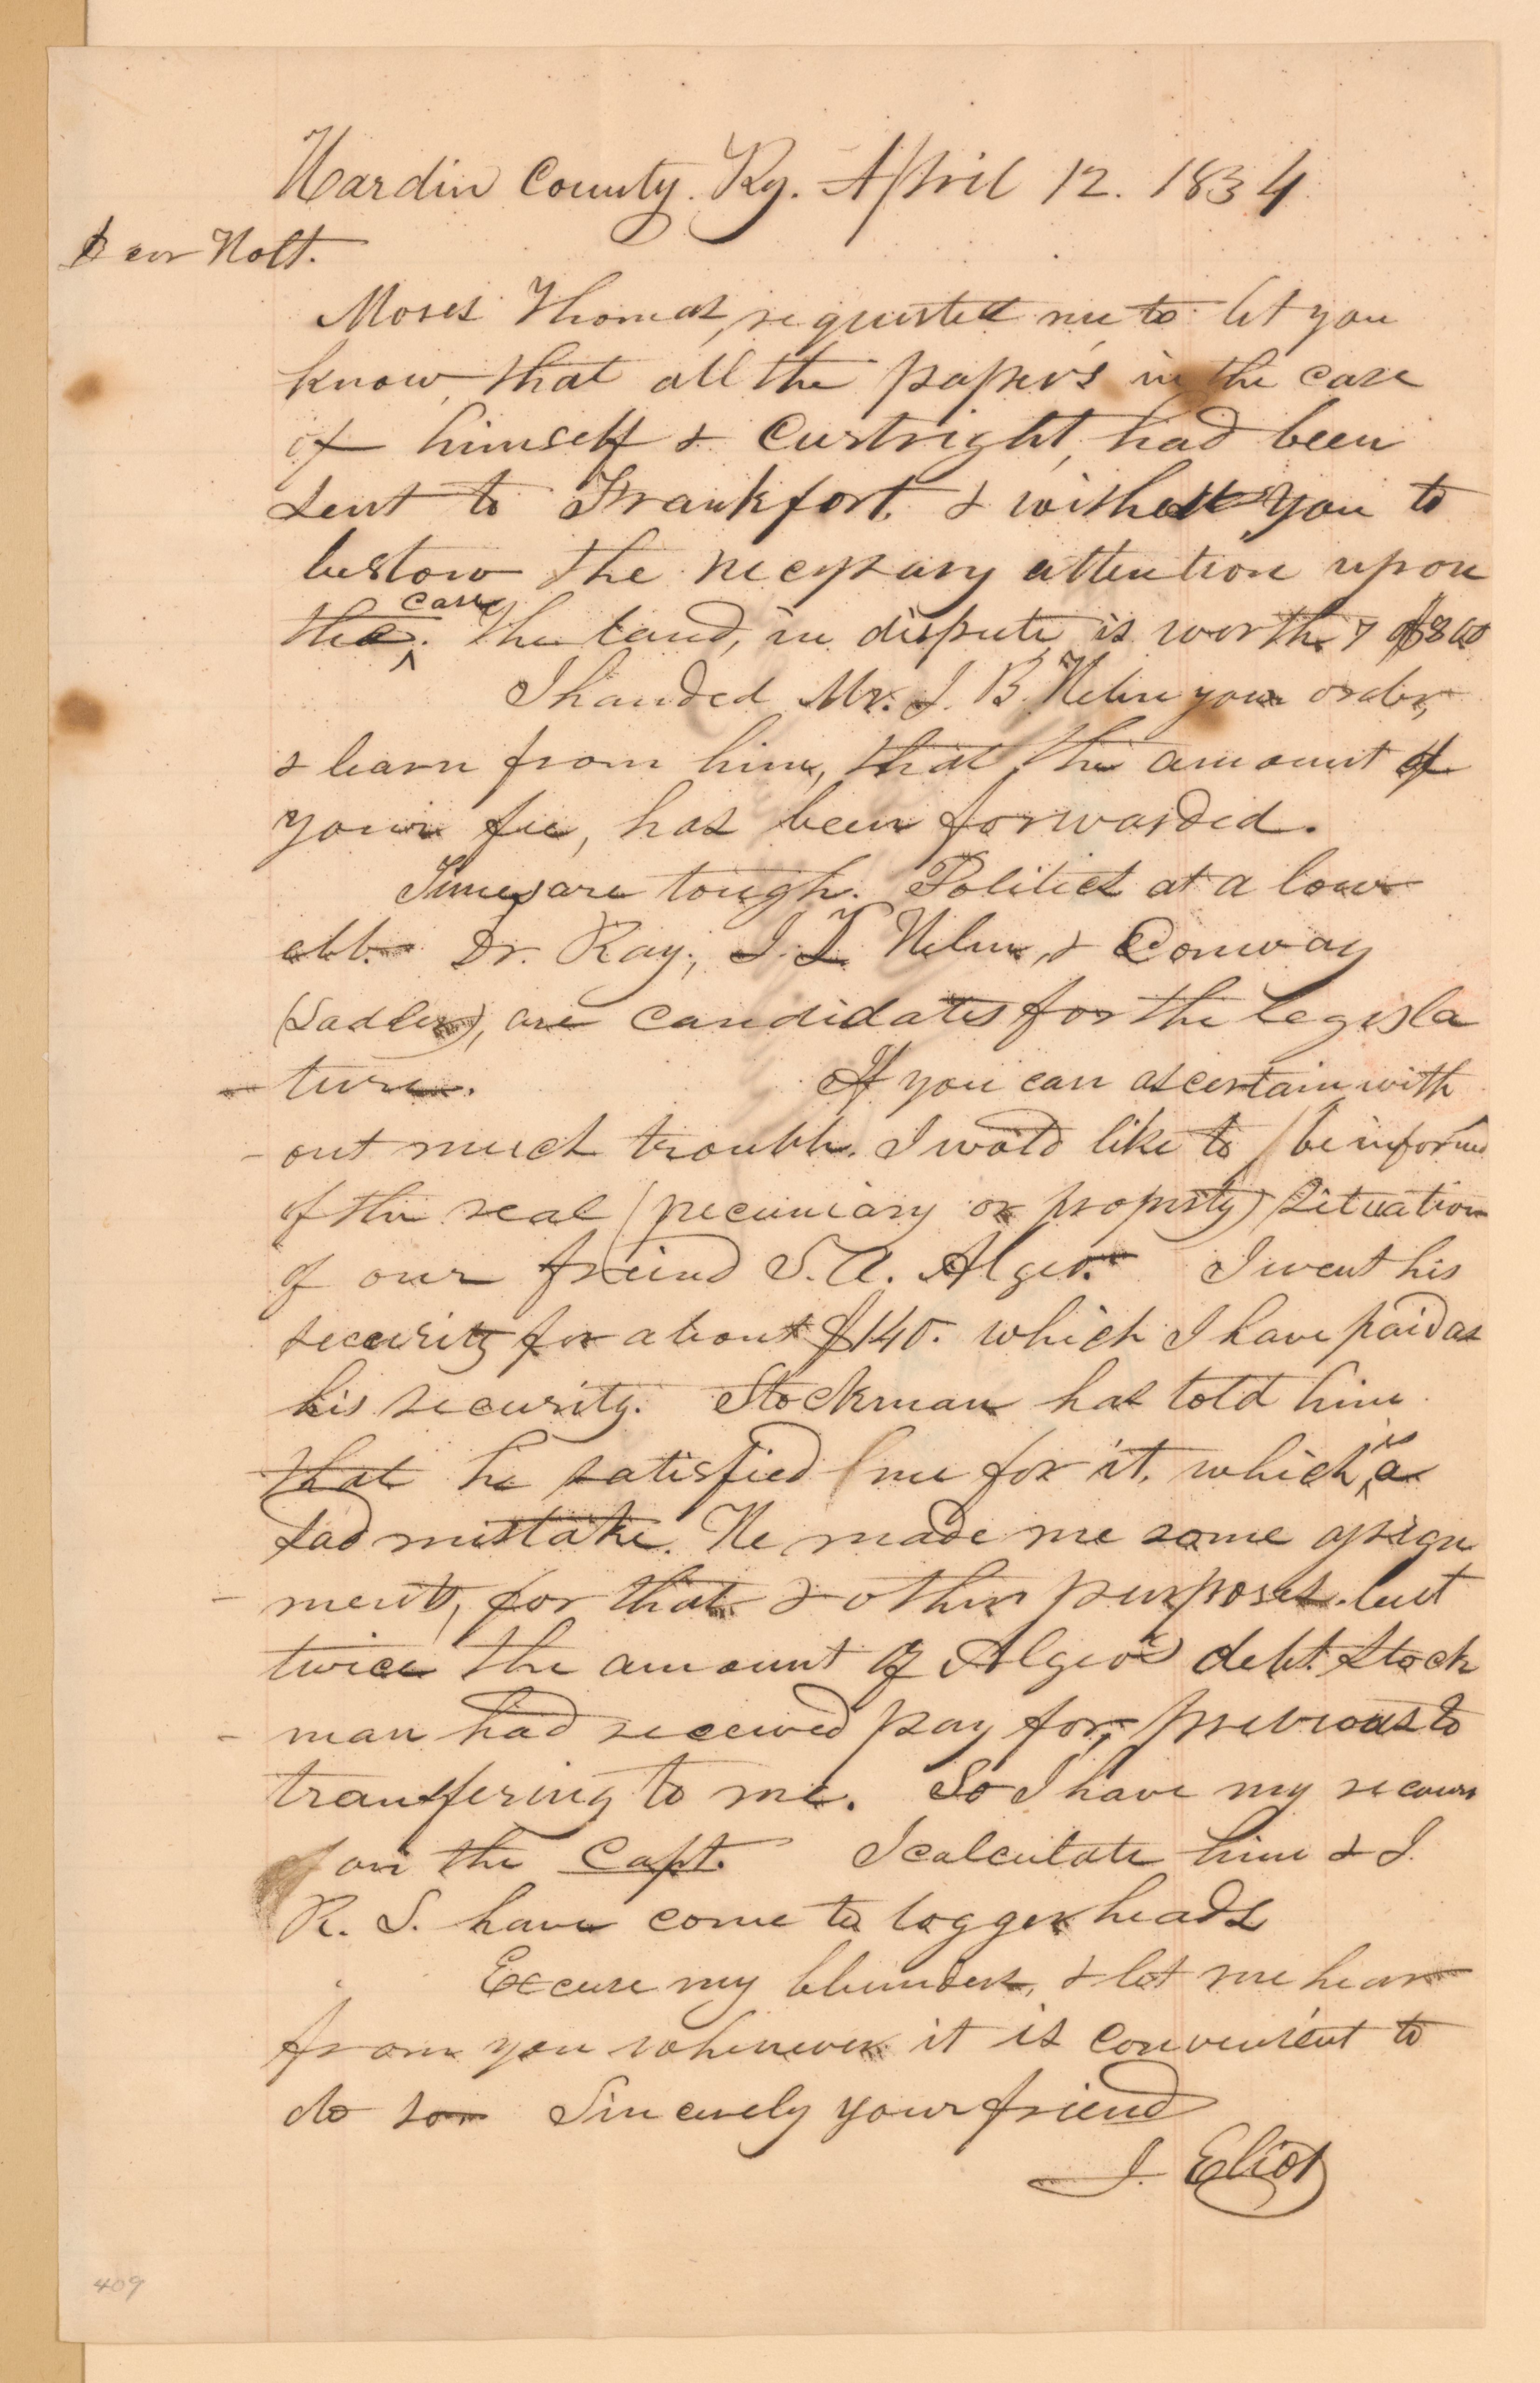 Hardin County. Ky. April 12. 1834
Dear Holt.
Moses Thomas, requested me to let you
know, that all the papers in the case
of himself & Curtright, had been
sent to Frankfort. & wished you to
bestow the necessary attention upon
the case. The land, in dispute, is worth 7 or $800
I handed Mr. J. B. Helm your order,
& learn from him, that the amount of
your fee, has been forwarded.
Times are tough. Politics at a low
ebb. Dr. Ray, J. L Helm, & Conway
(Sadler), are candidates for the legisla
- ture. If you can ascertain with
- out much trouble. I wo'ld like to be informed
of the real (pecuniary or property) situation
of our friend S. A. Algeo. I went his
security for about $140. which I have paid as
his security. Stockman has told him
that he satisfied me for it, which is a
sad mistake. He made me some assign
- ments, for that & other purposes. but
twice the amount of Algeo's debt Stock
- man had received pay for, previous to
transfering to me. So I have my recours
on the Capt. I calculate him & J.
R. S. have come to loggerheads
Excuse my blunders, & let me hear
from you whenever it is convenient to
do so Sincerely your friend
J. Eliot
409